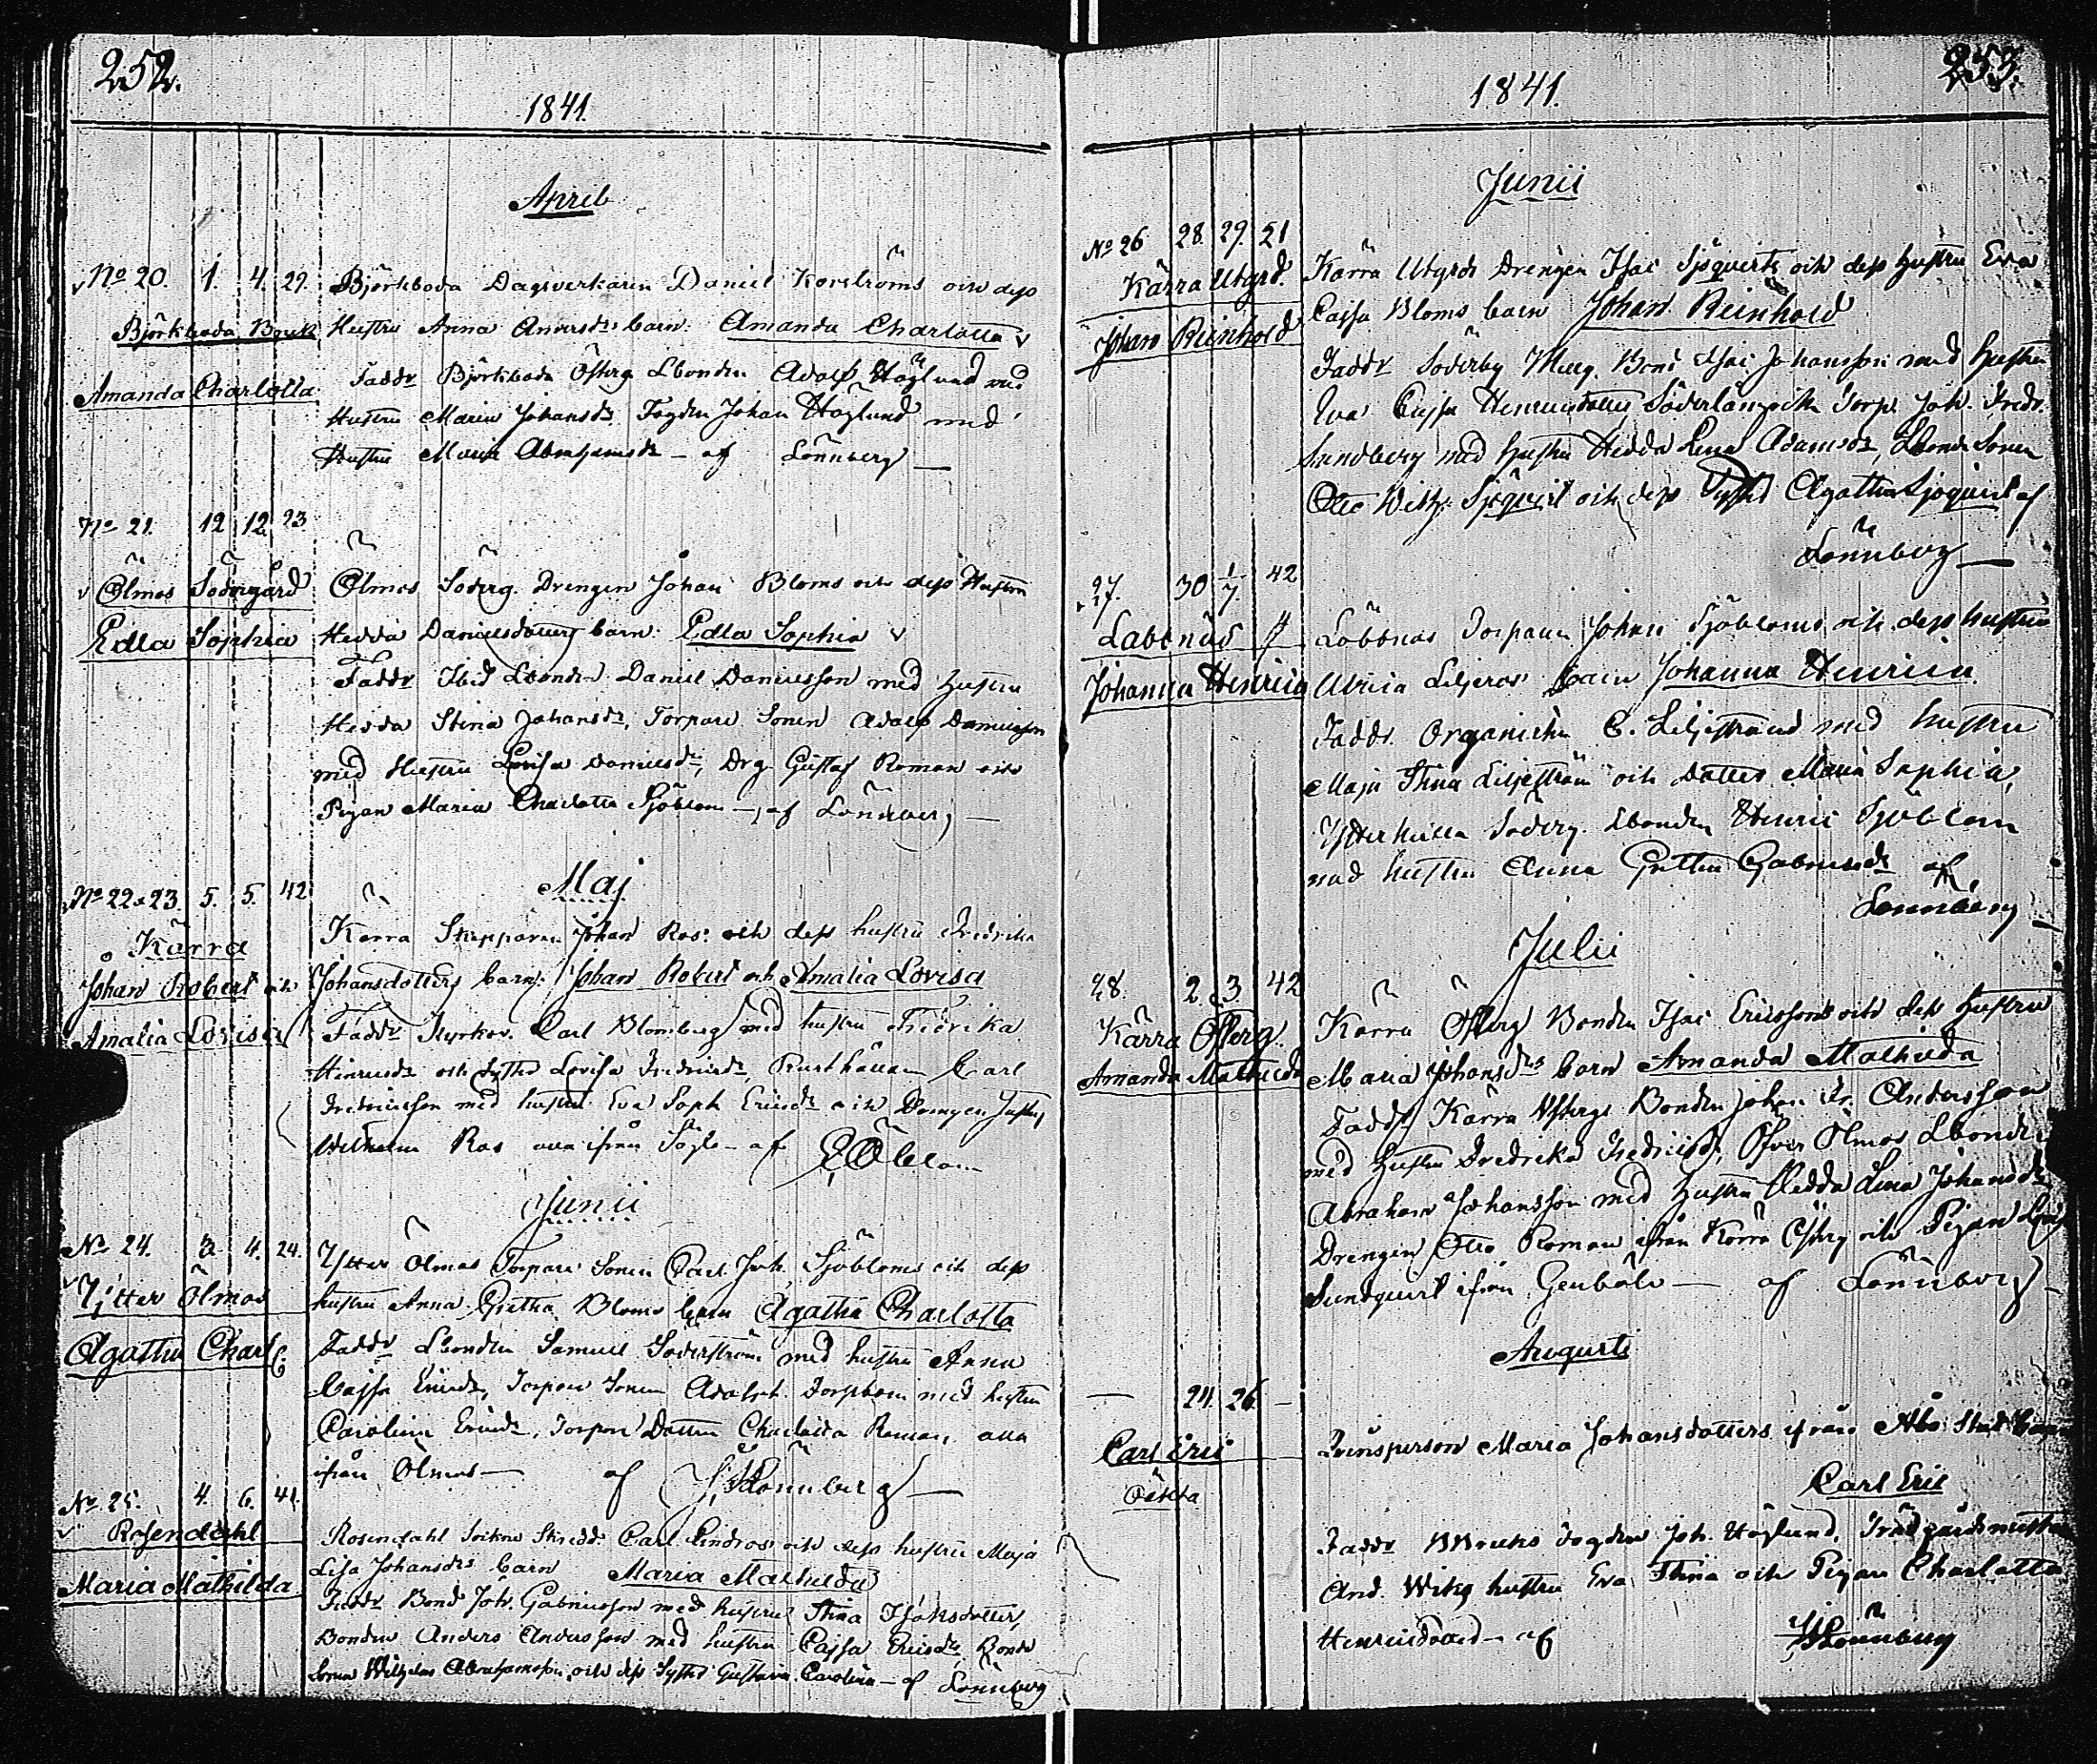 252.
1841.
April
No 20. 1. 4. 29.
Björkboda Bruk
Amanda Charlotta
Björkboda Dagsverkaren Daniel Korströms och dess
Hustru Anna Andersdrs barn: Amanda Charlotta
Faddr Björkboda Österg. Lbonden Adolf Höglund med
Hustru Maria Johansdr. Fogden Johan Höglund med
Hustru Maria Abrahamsdr – af Lönnberg
No 21. 12 12. 23
Ölmos Södergård
Edla Sophia
Ölmos Söderg. Drengen Johan Bloms och dess Hustru
Hedda Danielsdotters barn: Edla Sophia
Faddr Ibid Lbonden Daniel Danielsson med Hustru
Hedda Stina Johansdr, Torpare Sonen Adolf Danielsson
med Hustru Lovisa Danielsdr, Drg. Gustaf Roman och
Pigan Maria Charlotta Sjöblom – af Lönnberg
Maj
No 22 o 23. 5. 5. 42
Kärra
Johan Robert och
Amalia Lovisa
Kärra Skepparen Johan Ros: och dess hustru Fredrika
Johansdotters barn: Johan Robert och Amalia Lovisa
Faddr Kyrkov. Carl Blomberg med hustru Fredrika
Henricsdr och Syster Lovisa Fredricsdr, Carl
Fredricsson med hustru Eva Soph. Ericsdr och Drengen
Wilhelm Ros alla ifrån – af
Junii
No 24. 3. 4. 24.
Ytter Ölmos
Agatha Charl.
Ytter Ölmos Torpare Sonen Carl Joh. Sjöbloms och dess
hustru Anna Gretha Bloms barn Agatha Charlotta
Faddr Lbonden Samuel Söderström med hustru Anna
Cajsa Ericsdr, Torpare Sonen Adolph Torpbom med hustru
Carolina Ericsdr, Torpare Dottren Charlotta Roman, alla
ifrån Ölmos – af Lönnberg
No 25. 4. 6. 41.
Rosendahl
Maria Mathilda
Rosendahl Sockne Skredd. Carl Lindros och dess hustru Maja
Lisa Johansdrs barn Maria Mathilda
Faddr Bond Joh. Gabrielsson med hustru Stina Isaksdotter,
Bonden Anders Andersson med hustru Cajsa Ericsdr, Bonde
Sonen Wilhelm Abrahamsson och dess Syster Gustava Carolina – af Lönnberg
253.
1841.
Junii
No 26 28. 29. 21
Kärra Utgrd.
Johan Reinhold
Kärra Utgrds Drengen Isac Sjöqvists och dess hustru Eva
Cajsa Bloms barn Johan Reinhold
Faddr Söderby Bond Isac Johansson med hustru
Eva Cajsa Henricsdotter, Söderlångvik Torp. Joh. Fredr.
Sundberg med hustru Hedda Lena Adamsdr, Lbonde Sonen
Otto Wilh. Sjöqvist och dess Syster Agatha Sjöqvist af
Lönnberg
27. 30 1/7. 42
Labbnäs
Johanna Henrica
Labbnäs Torparen Johan Sjöbloms och dess hustru
Ulrica Liljeros barn Johanna Henrica.
Faddr. Organisten C. Liljestrand med hustru
Maja Stina Liljeström och Dotter Maria Sophia,
Ytterkulla Söderg. Lbonden Henric Sjöblom
med hustru Anna Gretha Gabrielsdr af
Lönnberg
Julii
28. 2. 3. 42
Kärra Österg.
Amanda Mathilda
Kärra Österg Bonden Isac Ericssons och dess hustru
Maria Johansdrs barn Amanda Mathilda
Faddr Kärra Bonden Johan Fr. Andersson
med hustru Fredrika Fredricsdr, Öfver Ölmos Lbonden
Abraham Johansson med hustru Hedda Lena Johansdr
Drengen Otto Roman ifrån Kärra Österg och Pigan
Sundqvist ifrån Genböle – af Lönnberg
Augusti
24. 26.
Carl Eric
Oäkta
Qvinsperson Maria Johansdotters ifrån Åbo Stad barn
Carl Eric
Faddr Bruks Fogden Joh. Höglund, Trädgårdsmästar
And. Wiks hustru Eva Stina och Pigan Charlotta
Henricsdotter – af Lönnberg